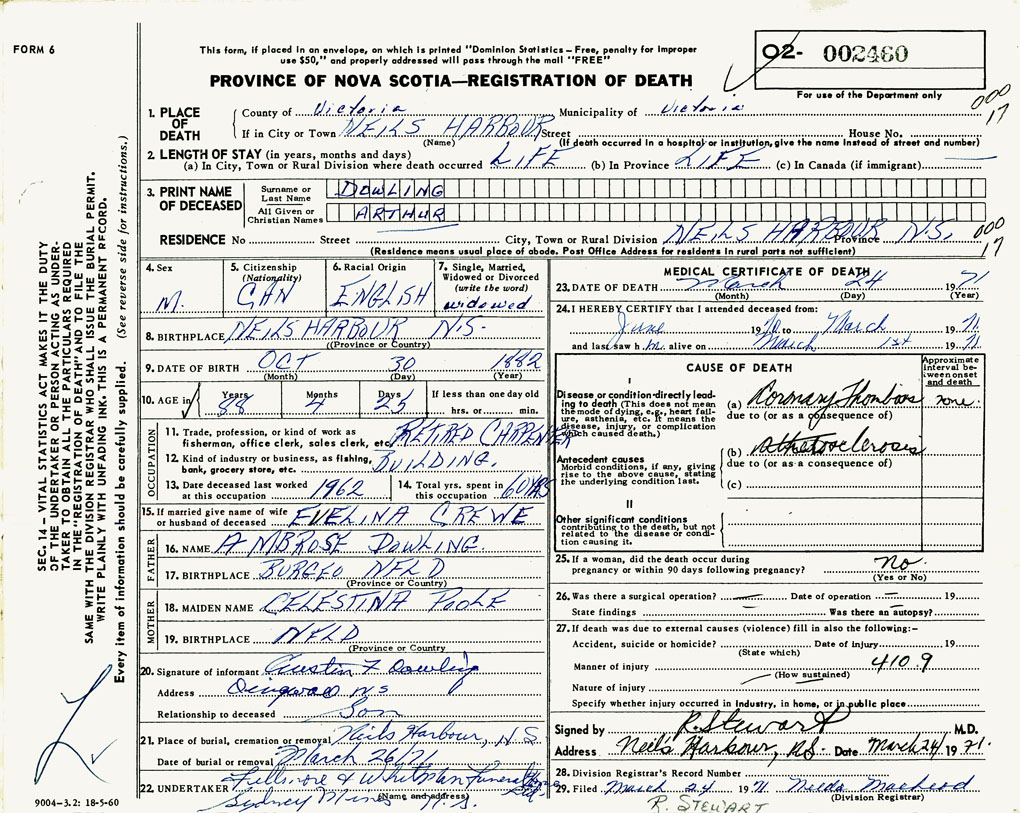 FORM 6
This form, if placed in an envelope, on which is printed "Dominion Statistics – Free, penalty for improper
use $50," and properly addressed will pass through the mail "FREE"
PROVINCE OF NOVA SCOTIA—REGISTRATION OF DEATH
02- 002460
For use of the Department only
000
17
1. PLACE OF DEATH
County of Victoria Municipality of Victoria
If in City or Town NEILS HARBOUR Street House No.
(Name) (If death occurred in a hospital or institution, give the name instead of street and number)
2. LENGTH OF STAY (in years, months and days)
(a) In City, Town or Rural Division where death occurred LIFE (b) In Province LIFE (c) In Canada (if immigrant) —
3. PRINT NAME OF DECEASED
Surname or Last Name DOWLING
All Given or Christian Names ARTHUR
RESIDENCE No Street City, Town or Rural Division NEILS HARBOUR Province N.S.
000
17
(Residence means usual place of abode. Post Office Address for residents in rural parts not sufficient)
4. Sex M.
5. Citizenship (Nationality) CAN
6. Racial Origin ENGLISH
7. Single, Married, Widowed or Divorced (write the word) widowed
8. BIRTHPLACE NEILS HARBOUR N.S.
(Province or Country)
9. DATE OF BIRTH OCT 30 1882
(Month) (Day) (Year)
10. AGE in Years 88 Months 4 Days 25 If less than one day old hrs. or min.
OCCUPATION
11. Trade, profession, or kind of work as
fisherman, office clerk, sales clerk, etc. RETIRED CARPENTER
12. Kind of industry or business, as fishing,
bank, grocery store, etc. BUILDING.
13. Date deceased last worked at this occupation 1962
14. Total yrs. spent in this occupation 60 YRS
15. If married give name of wife
or husband of deceased EVELINA CREWE
FATHER
16. NAME AMBROSE DOWLING.
17. BIRTHPLACE BURGEO NFLD
(Province or Country)
MOTHER
18. MAIDEN NAME CELESTINA POOLE
19. BIRTHPLACE NFLD
(Province or Country
20. Signature of informant Austin F Dowling
Address Dingwall NS
Relationship to deceased Son
21. Place of burial, cremation or removal Neils Harbour, N.S.
Date of burial or removal March 26/71
22. UNDERTAKER Fillmore & Whitman Funeral Home
Sydney Mines N.S.
(Name and address)
9004–3.2: 18-5-60
MEDICAL CERTIFICATE OF DEATH
23. DATE OF DEATH March 24 1971
(Month) (Day) (Year)
24. I HEREBY CERTIFY that I attended deceased from:
June 1970 to March 1971
and last saw him alive on March 1st 1971
CAUSE OF DEATH
Approximate interval between onset and death
I
Disease or condition directly leading
to death (This does not mean
the mode of dying, e.g., heart failure,
asthenia, etc. It means the
disease, injury, or complication
which caused death.)
(a) Coronary Thrombosis none.
due to (or as a consequence of)
Antecedent causes
Morbid conditions, if any, giving
rise to the above cause, stating
the underlying condition last.
(b) atherosclerosis
due to (or as a consequence of)
(c)
II
Other significant conditions
contributing to the death, but not
related to the disease or condition
causing it.
25. If a woman, did the death occur during
pregnancy or within 90 days following pregnancy? No.
(Yes or No)
26. Was there a surgical operation? — Date of operation — 19
State findings — Was there an autopsy?
27. If death was due to external causes (violence) fill in also the following:–
Accident, suicide or homicide? Date of injury 19
(State which)
Manner of injury 410.9
(How sustained)
Nature of injury
Specify whether injury occurred in industry, in home, or in public place
Signed by R Stewart M.D.
Address Neil's Harbour, N.S. Date March 24/ 1971.
28. Division Registrar's Record Number
29. Filed March 24 1971
(Division Registrar)
R. STEWART
SEC. 14 – VITAL STATISTICS ACT MAKES IT THE DUTY
OF THE UNDERTAKER OR PERSON ACTING AS UNDERTAKER
TO OBTAIN ALL THE PARTICULARS REQUIRED
IN THE "REGISTRATION OF DEATH" AND TO FILE THE
SAME WITH THE DIVISION REGISTRAR WHO SHALL ISSUE THE BURIAL PERMIT.
WRITE PLAINLY WITH UNFADING INK. THIS IS A PERMANENT RECORD.
Every item of information should be carefully supplied. (See reverse side for instructions.)